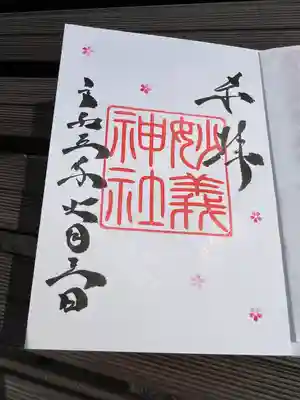 奉拝
妙義
神社
令和三年六月三日